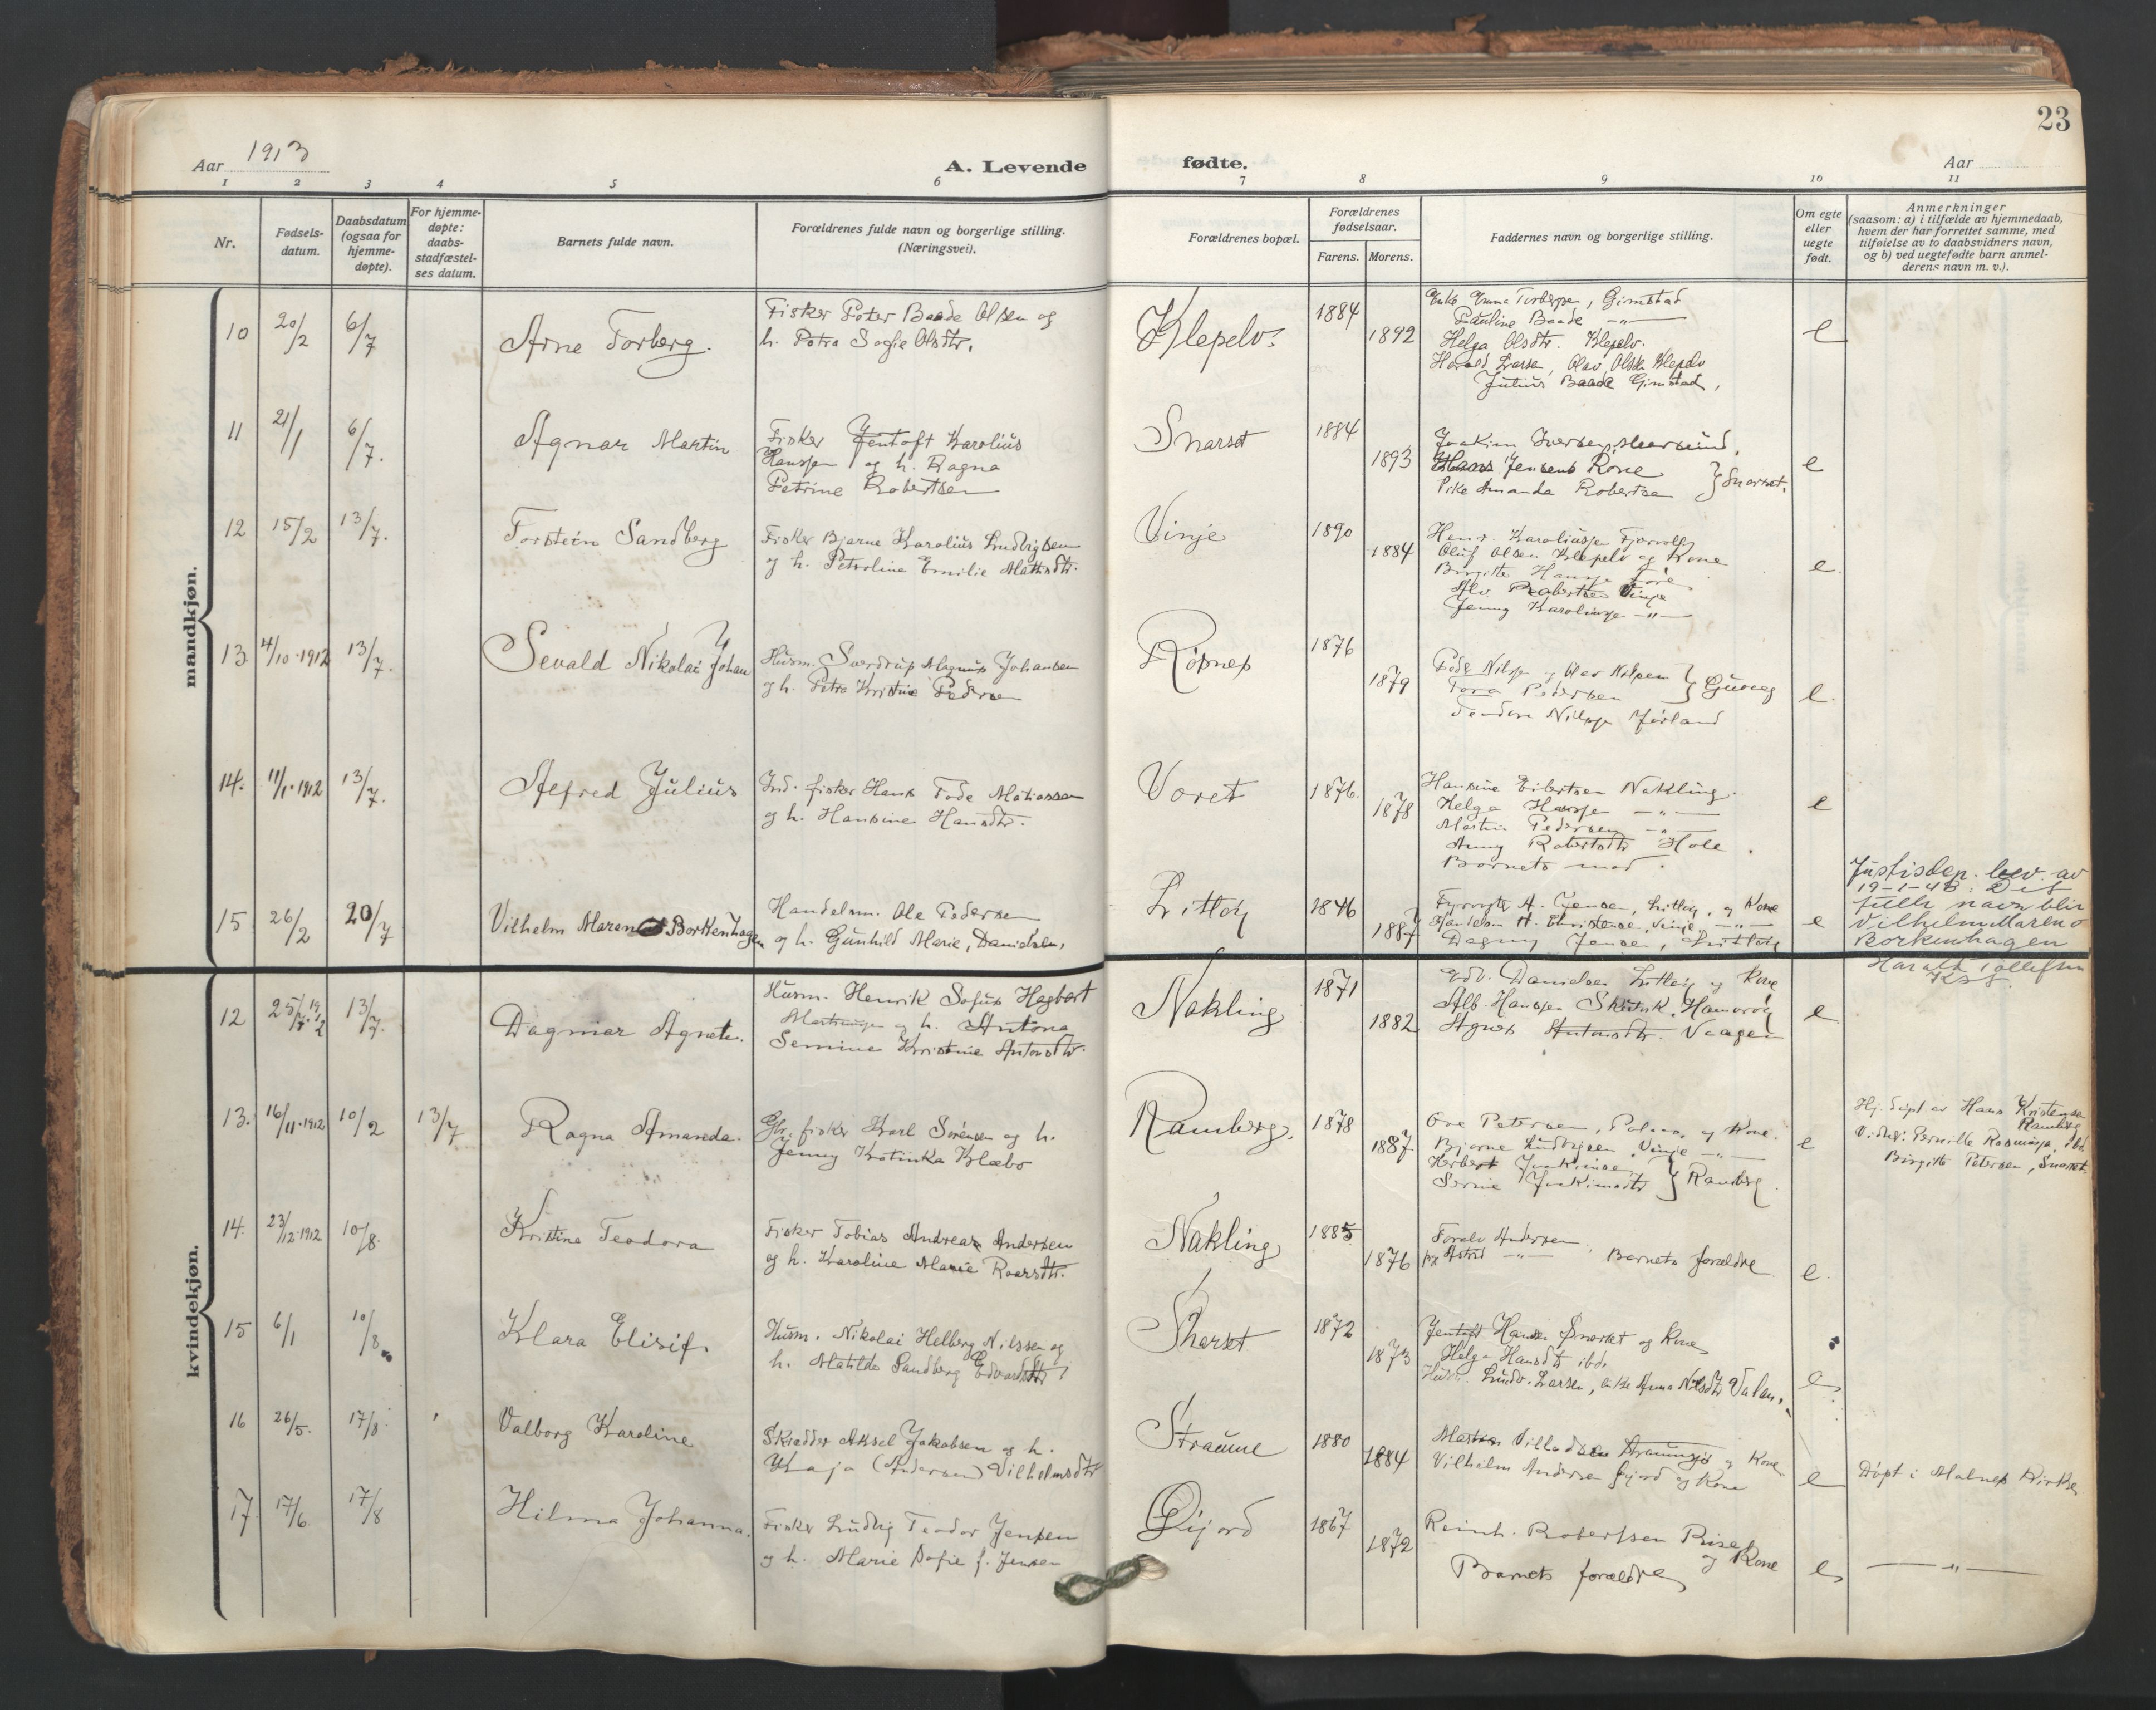 23
Aar 1913
A. Levende
fødte.
Aar
1 2 3 4 5 6 7 8 9 10 11
Nr.
Fødsels-
datum.
Daabsdatum
(ogsaa for
hjemme-
døpte).
For hjemme-
døpte:
daabs-
stadfæstel-
ses datum.
Barnets fulde navn.
Forældrenes fulde navn og borgerlige stilling.
(Næringsvei).
Forældrenes bopæl.
Forældrenes
fødselsaar.
Farens. Morens.
Faddernes navn og borgerlige stilling.
Om egte
eller
uegte
født.
Anmerkninger
(saasom: a) i tilfælde av hjemmedaab,
hvem der har forrettet samme, med
tilføielse av to daabsvidners navn,
og b) ved uegtefødte barn anmel-
derens navn m. v.).
mandkjøn.
10 20/2 6/7
Arne Torberg.
Fisker Peter Baade Olsen og
h. Petra Sofie Olsdtr.
Klepelv.
1884
1892
Enke Emma Torbergsen, Gimstad
Pauline Baade -"-
Helga Olsdtr. Klepelv.
Harald Larsen, Olav Olsen Klepelv
Julius Baade Gimstad,
e
11 21/1 6/7.
Agnar Martin
Fisker Jentoft Karolius
Hanssen og h. Ragna
Petrine Robertsen
Snarset
1884
1893
Joakim Iversen,
Hans Jensens Kone
Pike Amanda Robertsen } Snarset.
e
12 15/2 13/7.
Torstein Sandberg
Fisker Bjarne Karolius Ludvigsen
og h. Petroline Emilie
Vinje
1890
1884
Henr. Karoliussen
Oluf Olsen Klepelv og Kone
Birgitte Hanssen
Alv Robertsen Vinje
Jenny Karoliussen -"-
e.
13 4/10.1912 13/7.
Sevald Nikolai Johan
Husm. Sverdrup Magnus Johansen
og h. Petra Kristine Pedersen
Røsnes
1876
1879
Peder Nilsen og Olav Nilsen
Tora Pedersen }
Teodora Nilssen Jørland
e.
14. 11/1.1912 13/7.
Alfred Julius
Ind. fisker Hans Tode Matiassen
og h. Hansine Hansdtr.
Voret
1876.
1878
Hansine Eilertsen Nakling.
Helga Hanssen -"-
Martin Pedersen -"-
Anny Robertsdtr Hole.
Barnets mor.
e
15 26/2 20/7
Vilhelm Mareno Borkenhagen
Handelsm. Ole Pedersen
og h. Gunhild Marie, Danielsen,
Littøy
1876
1887
Fyrvogter A. Jensen, Littøy, og Kone
Handelsm. A. Christensen, Vinje, -"-
Dagny Jensen, Littöy
e
Justisdep. bev. av
19-1-48: Det
fulle navn blir
Vilhelm Mareno
Borkenhagen
Harald Tollefsen
kvindekjøn.
12 25/7.1912 13/7.
Dagmar Agnete.
Husm. Henrik Sofus Hagbart
Martinussen og h. Antona
Semine Kristine Antonsdtr.
Nakling
1871
1882
Edv. Danielsen Littøy og Kone
Alb. Hanssen Skitvik, Hamarøy
Agnes Antonsdtr. Vaagen
e
13. 16/11.1912 10/2 13/7
Ragna Amanda.
Gbr. fisker Karl Sørensen og h.
Jenny Kotinka Klæbo
Ramberg.
1878
1887
Ove Petersen, og Kone.
Bjarne Ludvigsen, Vinje -"-
Herbert Joakimsen
Serine Joakimsdtr } Ramberg.
e
Hj. døpt av Hans Kristensen
Ramberg
Vidner: Pernille Rasmussen, ibd.
Birgitte Petersen, Snarset.
14. 23/12.1912 10/8.
Kristine Teodora
Fisker Tobias Andreas Andersen
og h. Karoline Marie Roarsdtr.
Nakling
1885
1876
Toralv Andersen
pg. Astrid -"- Barnets forældre
e.
15 6/1 10/8
Klara Elisif.
Husm. Nikolai Helberg Nilssen og
h. Matilde Sandberg Edvardsdtr
Skerset
1872
1873
Jentoft Hansen Snarset og Kone
Helga Hansdtr ibd.
Husm. Ludv. Larsen, enke Anna Nilsdtr Valen.
e
16 26/5. 17/8
Valborg Karoline
Skrædder Aksel Jakobsen og h.
Kaja (Andersen) Vilhelmsdtr
Straume
1880
1884
Martin Villadsen Straumsjø og Kone
Vilhelm Andersen Øijord og Kone
e
Döpt i Malnes Kirke
17. 17/6 17/8
Hilma Johanna.
Fisker Ludvig Teodor Jensen
og h. Marie Sofie f. Jensen
Øijord
1867
1872
Reinh. Robertsen Rise
og Kone
Barnets forældre
e
-"-